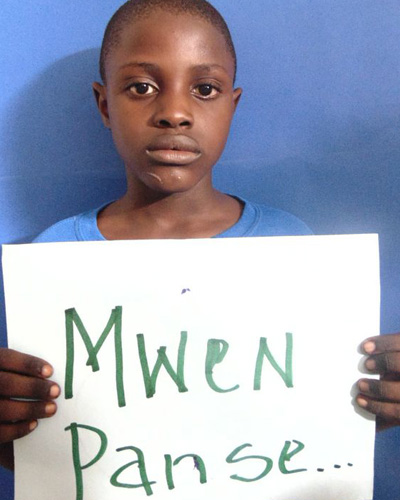 Mwen
Panse...